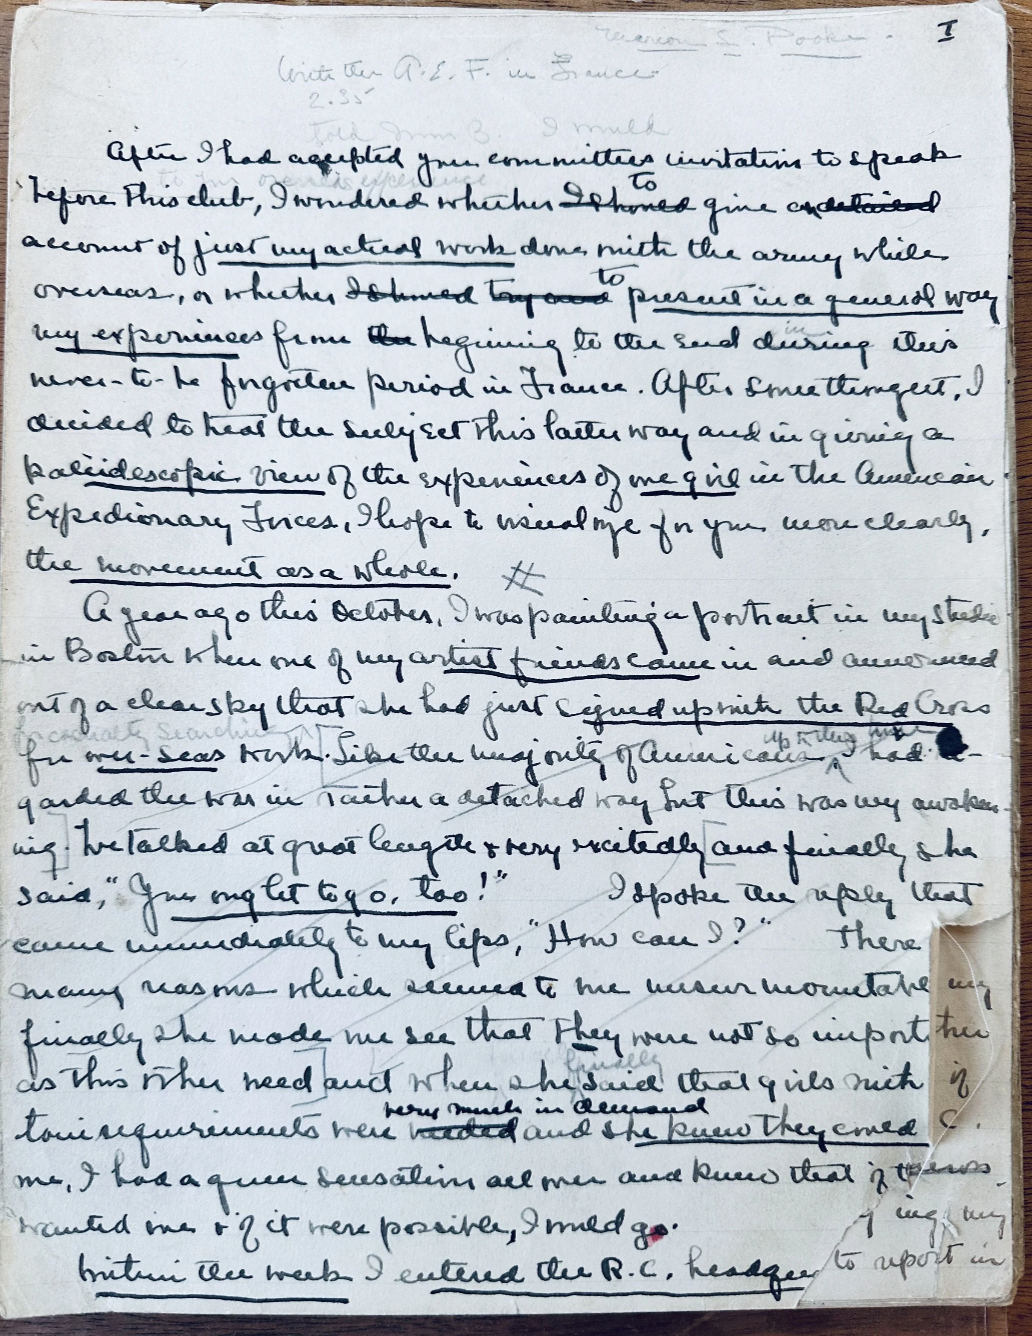 Marion L. Pooke. I
With the A. E. F. in France.
2.35
told Mrs B. I would
After I had accepted your committees invitation to speak
to you overseas experience
before this club, I wondered whether I should to give a detailed
account of just my actual work done with the army while
overseas, or whether I should try and to present in a general way
my experiences from the beginning to the end during in this
never-to-be forgotten period in France. After some thought, I
decided to treat the subject this latter way and in giving a
kaleidescopic view of the experiences of one girl in the American
Expedionary Forces, I hope to visualize for you more clearly,
the movement as a whole. #
A year ago this October, I was painting a portrait in my studio
in Boston when one of my artist friends came in and announced
out of a clear sky that she had just signed up with the Red Cross
for casualty searching
for over-seas work. [Like the majority of Americans up to this time I had re-
garded the war in rather a detached way but this was my awaken-
ing.] We talked at great length & very excitedly [and finally she
said, "You ought to go, too!" I spoke the reply that
came immediately to my lips, "How can I?" There
many reasons which seemed to me unsurmountabl my
finally she made me see that they were not so import
as this other need] and when she finally said that girls with if
requirements were needed very much in demand and she knew they could C.
me, I had a queer sensation all over and knew that if
wanted me & if it were possible, I would go. ing my
Within the week I entered the R.C. headqu to report in